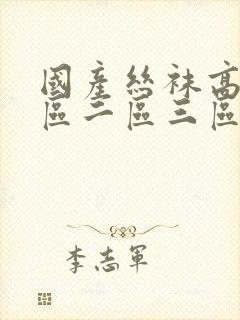 國產絲袜高
區二區三區
李志軍